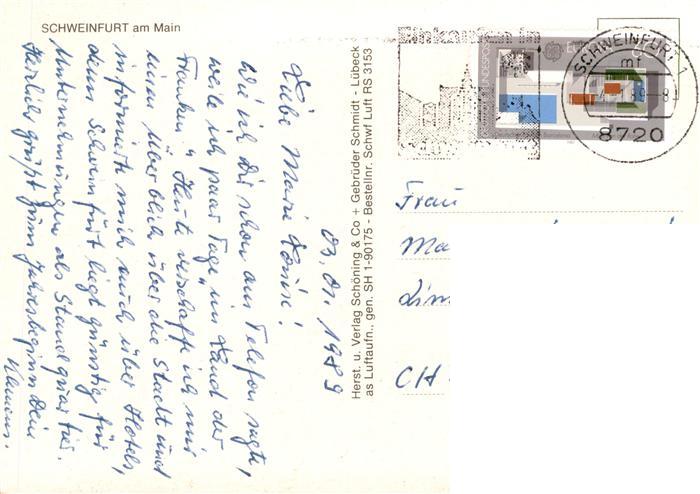 SCHWEINFURT am Main
03.01.1989
Liebe Marie Louise!
Wie ich Dir schon am Telefon sagte,
weile ich paar Tage "im Land der
Franken". Heute verschaffe ich mir
einen Überblick über die Stadt und
informiere mich auch über Hotels,
denn Schweinfurt liegt günstig für
Unternehmungen als Standquartier.
Herzlich grüßt zum Jahresbeginn Dein
Klemens.
Herst. u. Verlag Schöning & Co + Gebrüder Schmidt - Lübeck
as Luftaufn., gen. SH 1-90175 - Bestellnr. Schwf Luft RS 3153
Einkaufen in
SCHWEINFURT 1
mf
8720
Frau
Ma
Lim
CH